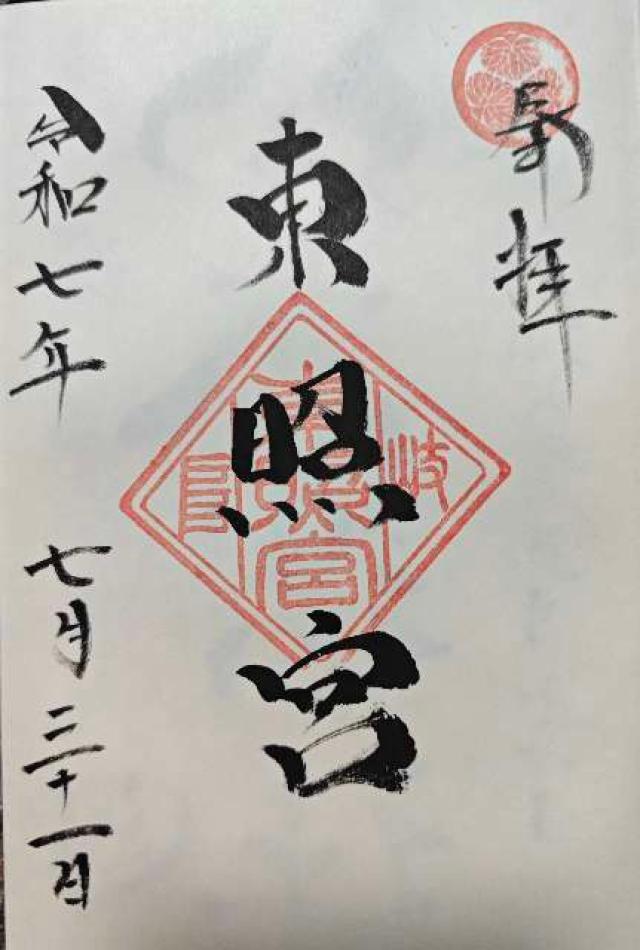 奉拝
東照宮
岐
東照宮
令和七年 七月三十一日